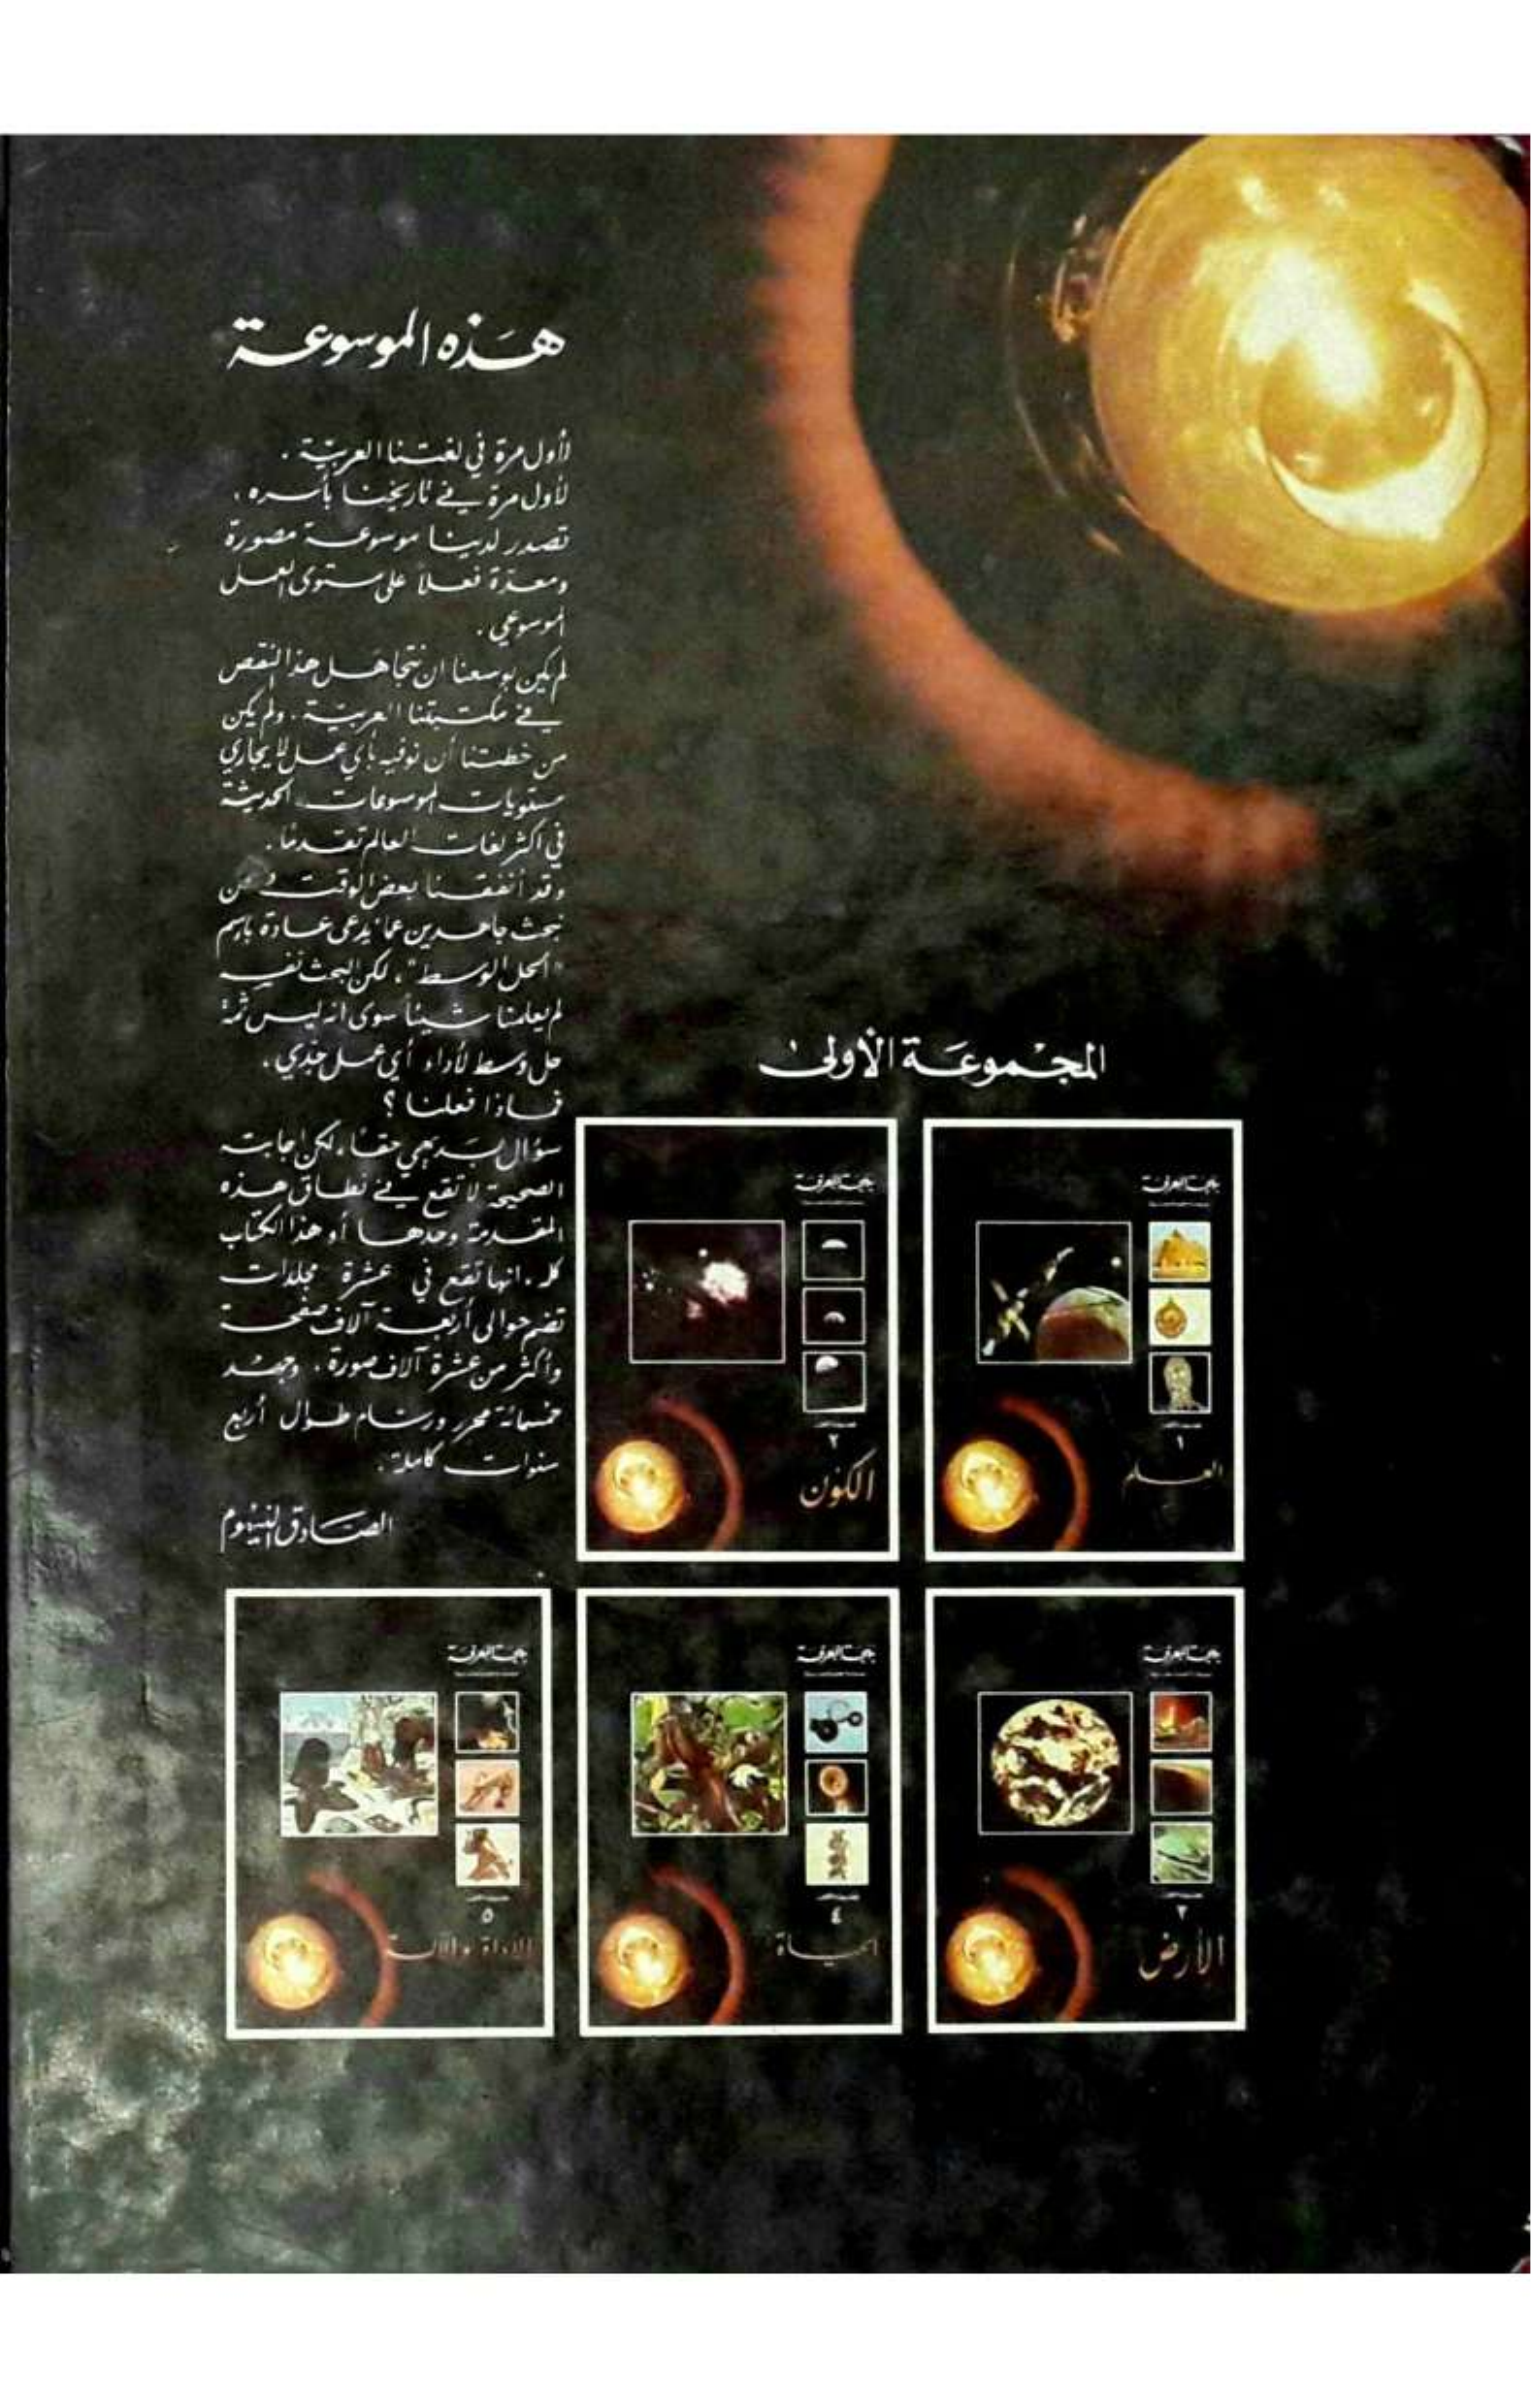 هذه الموسوعة
لأول مرة في لغتنا العربيّة .
لأول مرة في تاريخنا بأسره ،
تصدر لدينا موسوعة مصورة
ومعدّة فعلاً على مستوى العمل
الموسوعي .
لم يكن بوسعنا ان نتجاهل هذا النقص
في مكتبتنا العربيّة . ولم يكن
من خطتنا أن نوفيه بأي عمل لا يجاري
مستويات الموسوعات الحديثة
في اكثر لغات العالم تقدمًا .
وقد أنفقنا بعض الوقت ونحن
نبحث جاهدين عما يدعى عادة باسم
"الحل الوسط" ، لكن البحث نفسه
لم يعلمنا شيئاً سوى انه ليس ثمة
حل وسط لأداء أي عمل جدي .
فماذا فعلنا ؟
سؤال بديهي حقًا ، لكن اجابته
الصحيحة لا تقع في نطاق هذه
المقدمة وحدها أو هذا الكتاب
كله ، انها تقع في عشرة مجلدات
تضم حوالى أربعة آلاف صفحة
وأكثر من عشرة آلاف صورة ، وجهد
خمسمائة محرر ورسام طوال أربع
سنوات كاملة .
الصادق النيهوم
المجموعة الأولى
بهجة المعرفة
١
العلم
بهجة المعرفة
٢
الكون
بهجة المعرفة
٣
الأرض
بهجة المعرفة
٤
الحياة
بهجة المعرفة
٥
الاداة والآلة